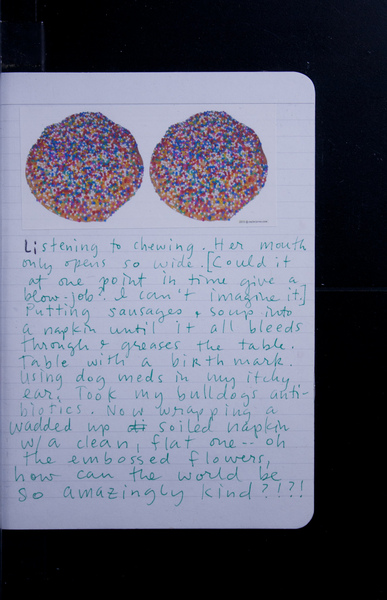 Listening to chewing. Her mouth
only opens so wide. [Could it
at one point in time give a
blow-job? I can't imagine it]
Putting sausages + soup into
a napkin until it all bleeds
through & greases the table.
Table with a birth mark.
Using dog meds in my itchy
ear. Took my bulldogs anti-
biotics. Now wrapping a
wadded up soiled napkin
w/a clean, flat one -- oh
the embossed flowers,
how can the world be
so amazingly kind?!?!